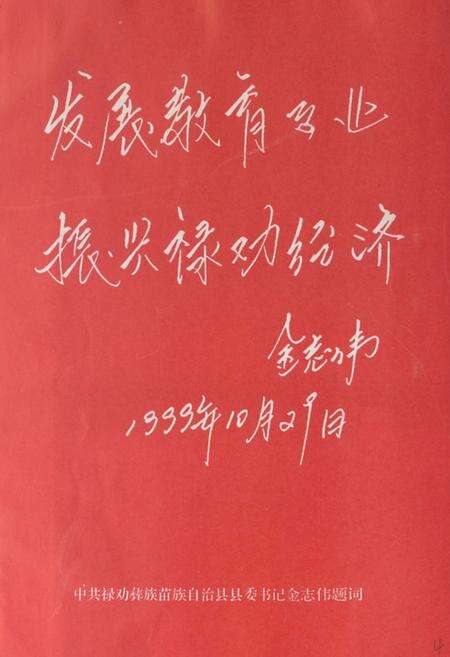 发展教育事业
振兴禄劝经济
金志伟
1999年10月29日
中共禄劝彝族苗族自治县县委书记金志伟题词
4